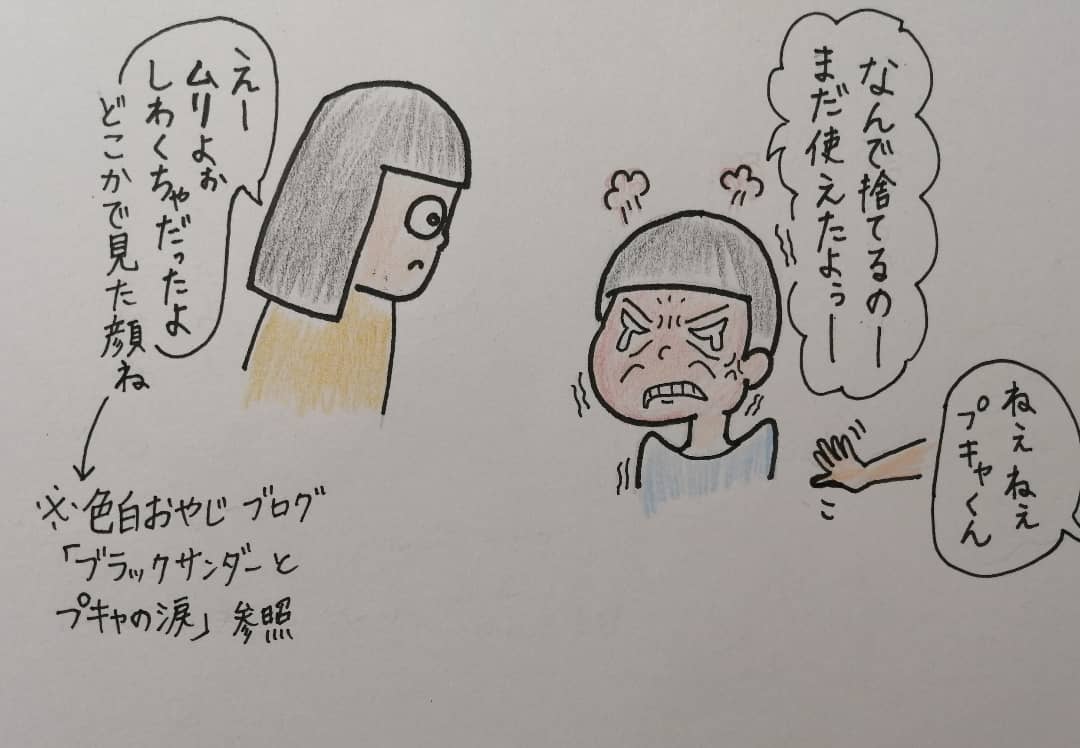 なんで捨てるのー
まだ使えたよぅー
ねぇねぇ
プキャくん
えー
ムリよぉ
しわくちゃだったよ
どこかで見た顔ね
※色白おやじ ブログ
「ブラックサンダーと
プキャの涙」参照